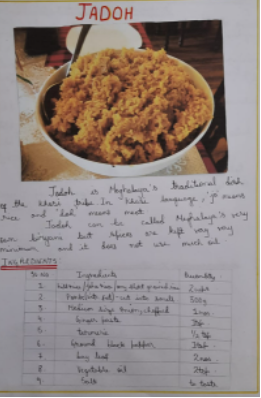 JADOH
Jadoh is Meghalaya's traditional dish
of the khasi tribe. In khasi language, 'ja' means
rice and 'doh' means meat.
Jadoh can be called Meghalaya's very
own biryani but spices are kept very very
minimum and it does not use much oil.
INGREDIENTS:
Sl.no Ingredients Quantity
1. rice 2 cups
2. Pork cut into small 500g
3. Medium size onion, chopped
4. Ginger paste
5. turmeric ½ tsp
6. Ground black pepper
7. bay leaf
8. Vegetable oil
9. Salt to taste